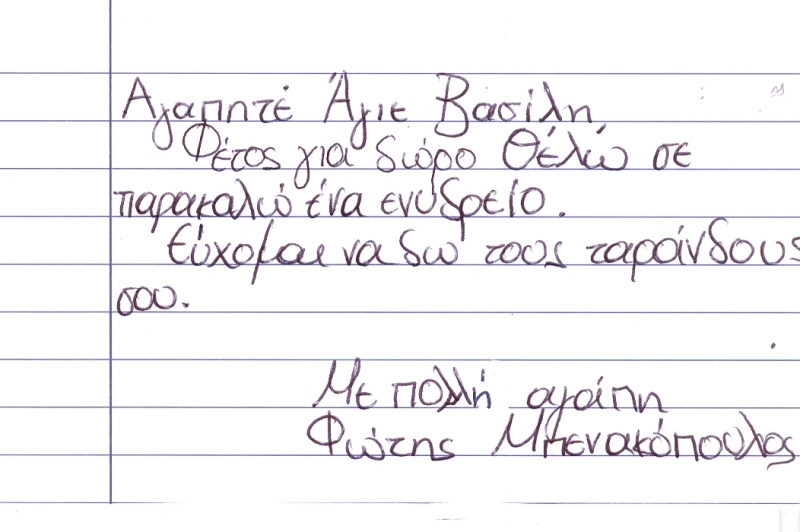 Αγαπητέ Άγιε Βασίλη,
Φέτος για δώρο θέλω σε
παρακαλώ ένα ενυδρείο.
Εύχομαι να δω τους ταράνδους
σου.
Με πολλή αγάπη
Φώτης Μπενακόπουλος